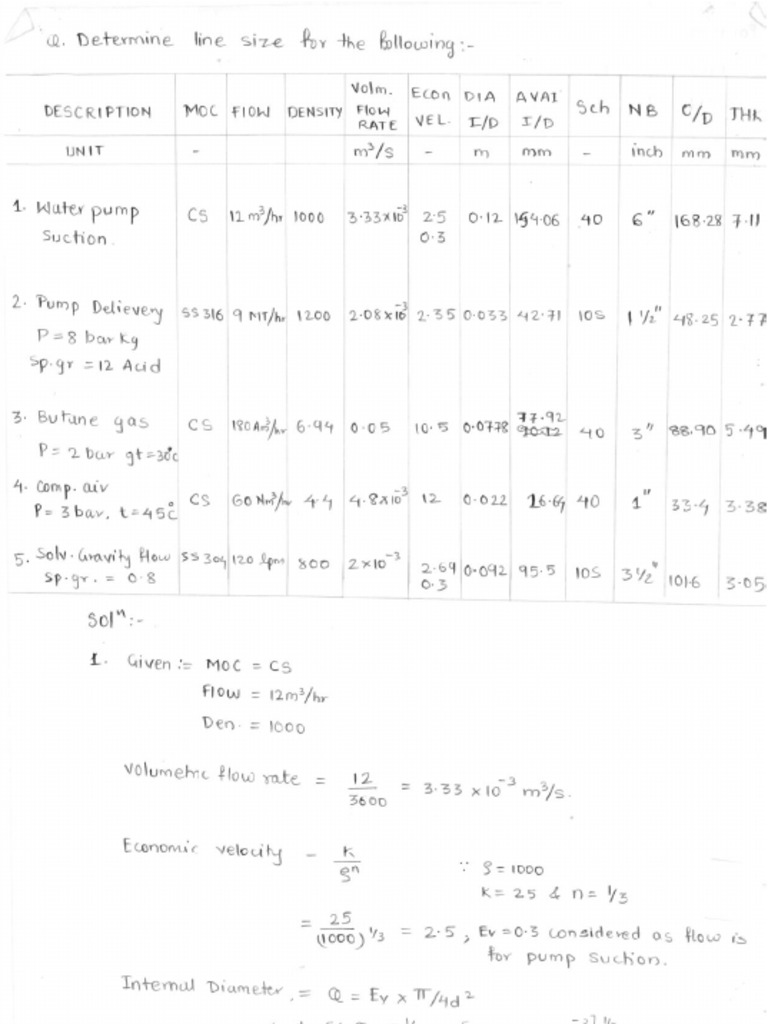 Q. Determine line size for the following:-
DESCRIPTION MOC FLOW DENSITY Volm. FLOW RATE Econ VEL. DIA I/D AVAI I/D Sch NB O/D THK
UNIT - m³/s - m mm - inch mm mm
1. Water pump Suction. CS 12 m³/hr 1000 3.33x10⁻³ 2.5 0.3 0.12 154.06 40 6" 168.28 7.11
2. Pump Delievery SS316 9 MT/hr 1200 2.08x10⁻³ 2.35 0.033 42.71 10S 1 1/2" 48.25 2.77
P=8 bar kg
Sp.gr =12 Acid
3. Butane gas CS 180 Am³/hr 6.94 0.05 10.5 0.0778 77.92 40 3" 88.90 5.49
P= 2 bar gt=30°c
4. Comp. air CS 60 Nm³/hr 4.4 4.8x10⁻³ 12 0.022 26.64 40 1" 33.4 3.38
P= 3 bar, t=45°c
5. Solv. Gravity flow SS304 120 lpm 800 2x10⁻³ 2.69 0.3 0.092 95.5 10S 3 1/2" 101.6 3.05
Sp.gr. = 0.8
Solⁿ:-
1. Given:= MOC = CS
Flow = 12m³/hr
Den. = 1000
Volumetric flow rate = 12/3600 = 3.33 x10⁻³ m³/s.
Economic velocity - K/ρⁿ ∵ ρ=1000
K= 25 & n= 1/3
= 25/(1000)^1/3 = 2.5, Ev=0.3 considered as flow is
for pump suction.
Internal Diameter, = Q = Ev x π/4d²